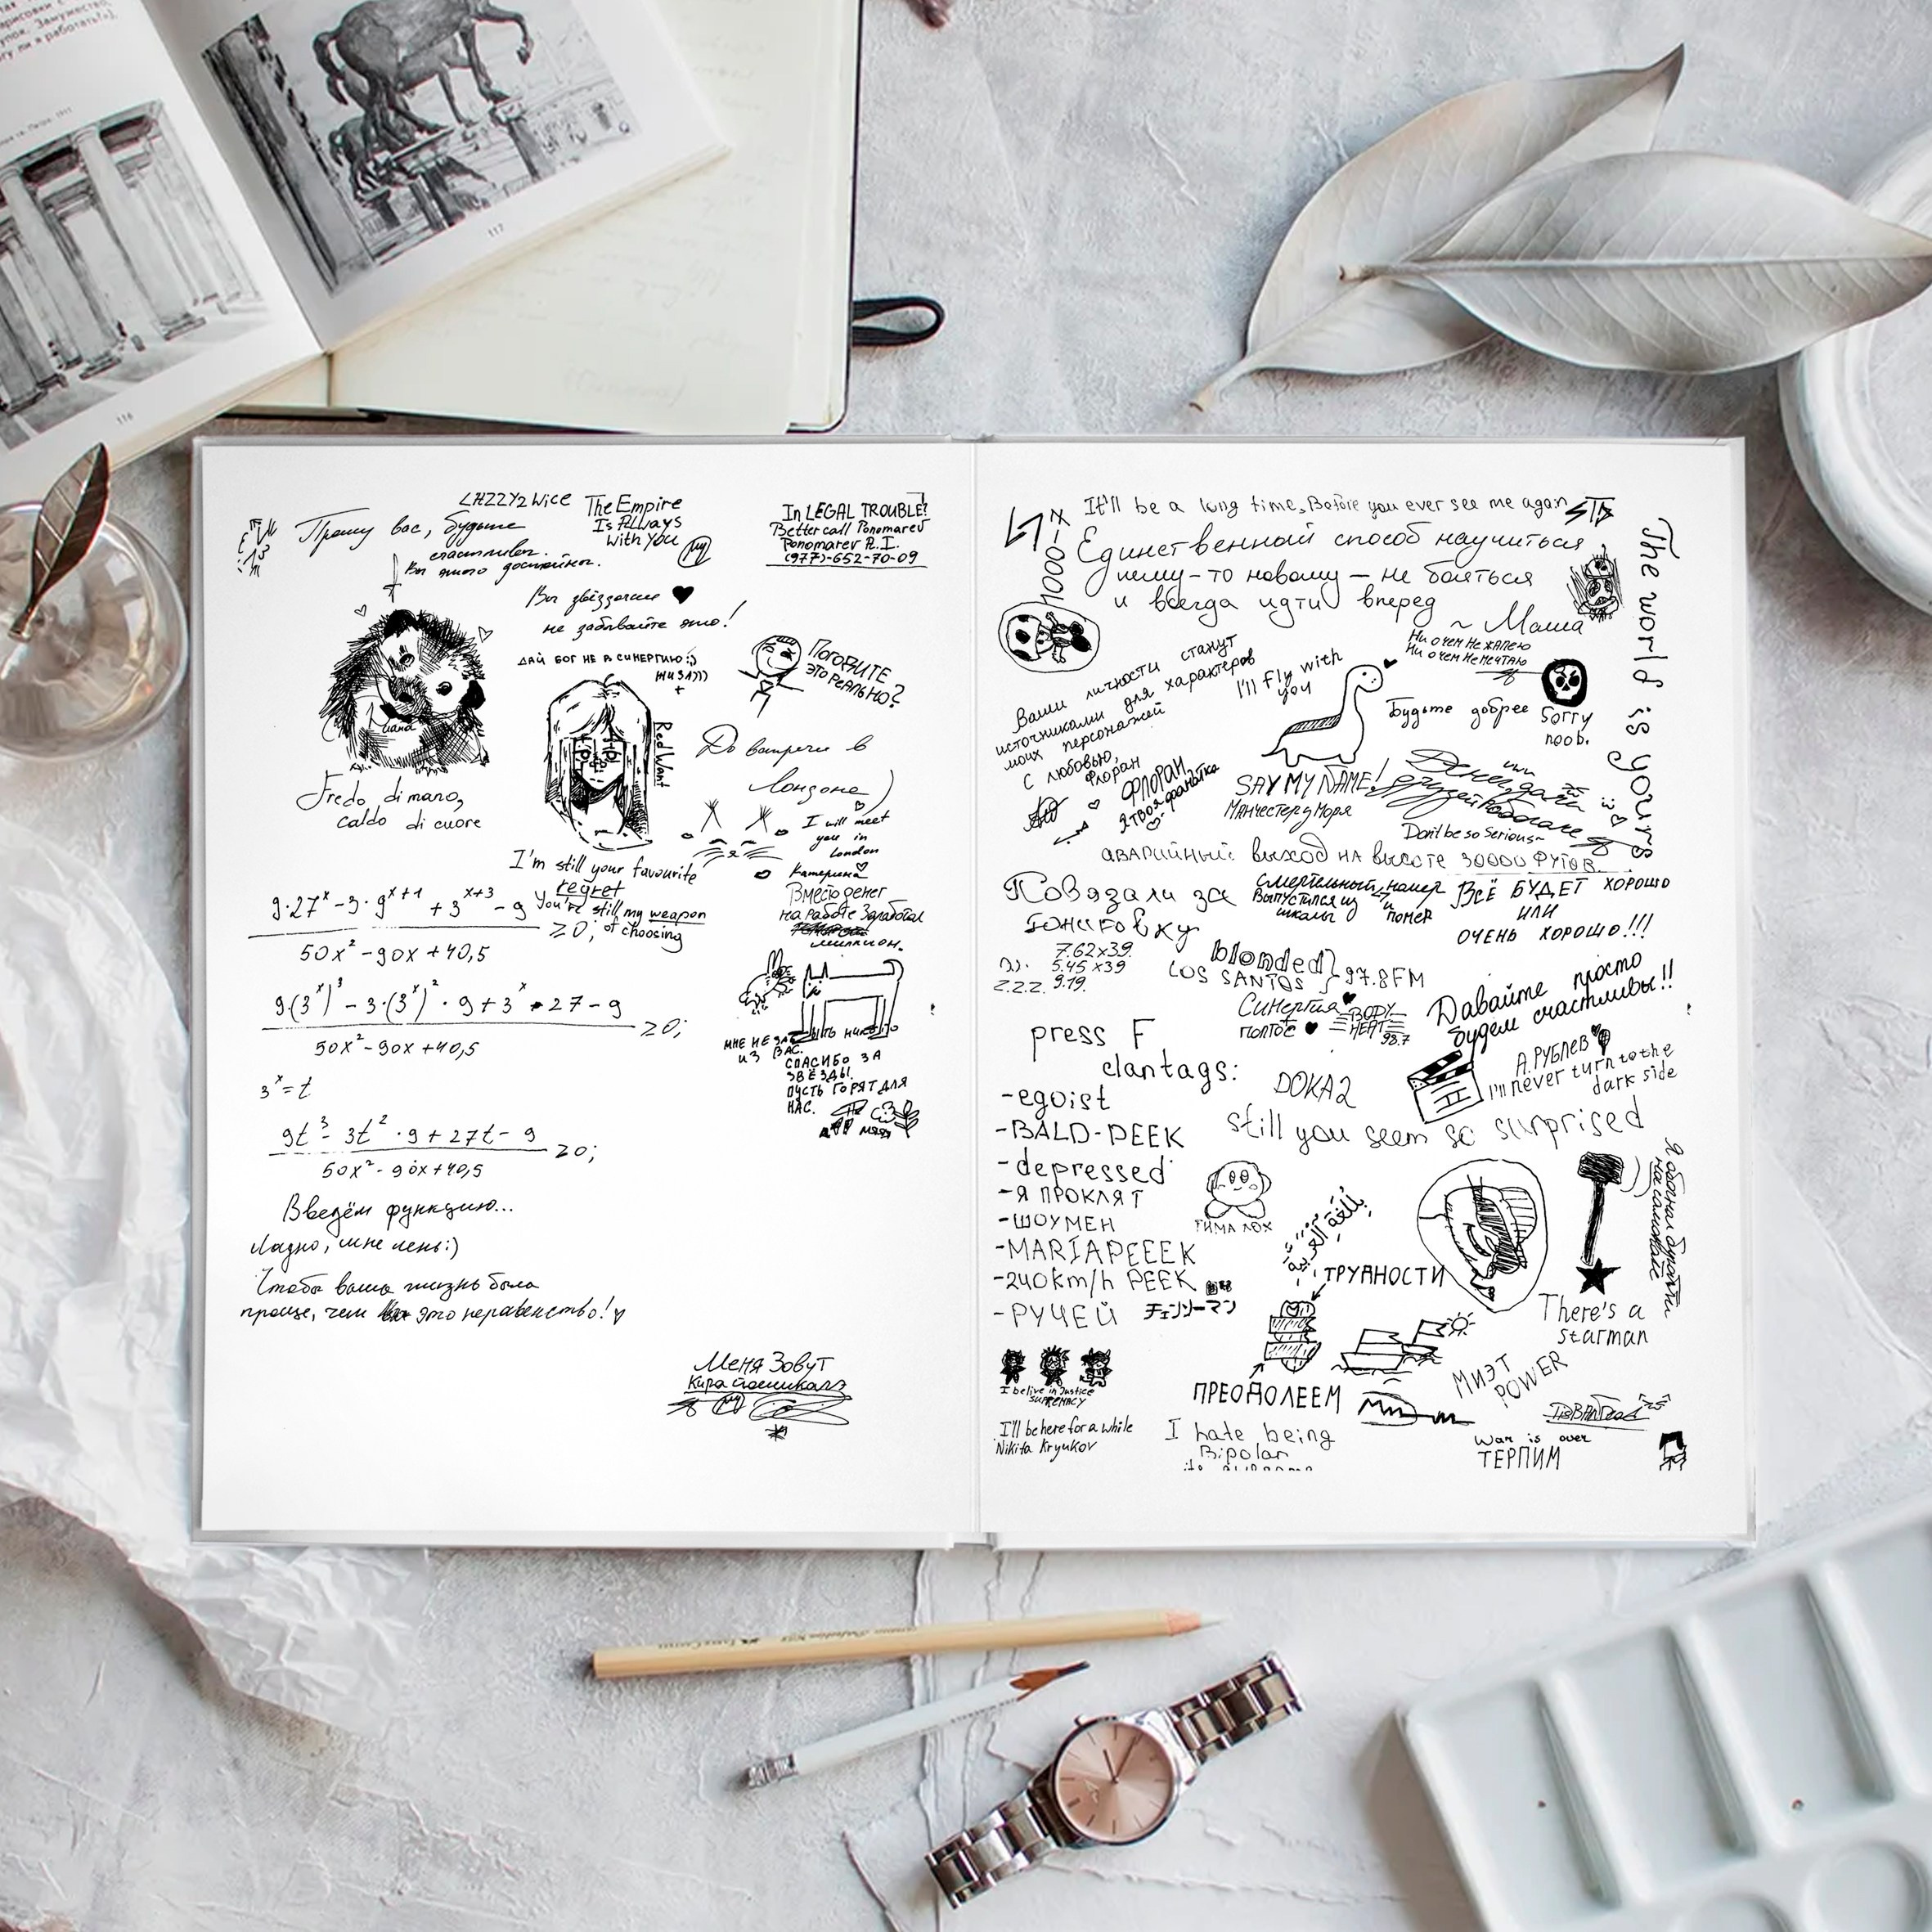 117
116
LAZZY2Wice
The Empire
Is Always
With You
In LEGAL TROUBLE?
Better call Ponomarev
Ponomarev P.I.
(977)-652-70-09
Прошу вас, будьте
счастливы.
Вы этого достойны.
Вы звёздочки
не забывайте это!
ДАЙ БОГ НЕ В СИНЕРГИЮ:)
ЖИЗА)))
+
ПОГОДИТЕ
ЭТО РЕАЛЬНО?
Red Want
До встречи в
Лондоне)
I will meet
you in
London
Катерина
Fredo di mano,
caldo di cuore
I'm still your favourite
regret
You're still my weapon
of choosing
Вместо денег
на работе заработал
миллион.
9·27^x-3·9^(x+1)+3^(x+3)-9
50x²-90x+40,5
≥0;
9·(3^x)³-3·(3^x)²·9+3^x·27-9
50x²-90x+40,5
≥0;
3^x=t
9t³-3t²·9+27t-9
50x²-90x+40,5
≥0;
Введём функцию...
Ладно, мне лень:)
Чтобы ваша жизнь была
проще, чем это неравенство!
ИЗ ВАС.
СПАСИБО ЗА
ЗВЁЗДЫ.
ПУСТЬ ГОРЯТ ДЛЯ
НАС.
Меня Зовут
Кира
It'll be a long time, Before you ever see me again
1000-7
Единственный способ научиться
чему-то новому - не бояться
и всегда идти вперед
~ Маша
The world is yours
Ни о чем не жалею
Ни о чем не мечтаю
Ваши личности станут
источниками для характеров
моих персонажей
С любовью,
Флоран
I'll fly with
you
Будьте добрее
Sorry
noob.
ФЛОРАН,
Я ТВОЯ фанатка
SAY MY NAME!
Манчестер у Моря
Don't be so Serious~
аварийный выход на высоте 30000 футов.
Повязали за
Смертельный номер
Выпустился из
школы и
помер
ВСЁ БУДЕТ ХОРОШО
ИЛИ
ОЧЕНЬ ХОРОШО!!!
7.62x39
5.45x39
9.19.
Z.Z.Z.
blonded
LOS SANTOS
97.8 FM
Синергия
ПОЛТОС
BODY
HEAT
98.7
Давайте просто
будем счастливы!!
press F
clantags:
-egoist
-BALD-PEEK
-depressed
-Я ПРОКЛЯТ
-ШОУМЕН
-MARIAPEEEK
-240km/h PEEK
-РУЧЕЙ
チェンソーマン
DOKA2
А.РУБЛЕВ
I'll never turn to the
dark side
still you seem so surprised
ТИМА ЛОХ
باللغة العربية
ТРУДНОСТИ
ПРЕОДОЛЕЕМ
There's a
starman
МИЭТ
POWER
I belive in Justice
supremacy
I'll be here for a while
Nikita Kryukov
I hate being
Bipolar
its awesome
War is over
ТЕРПИМ